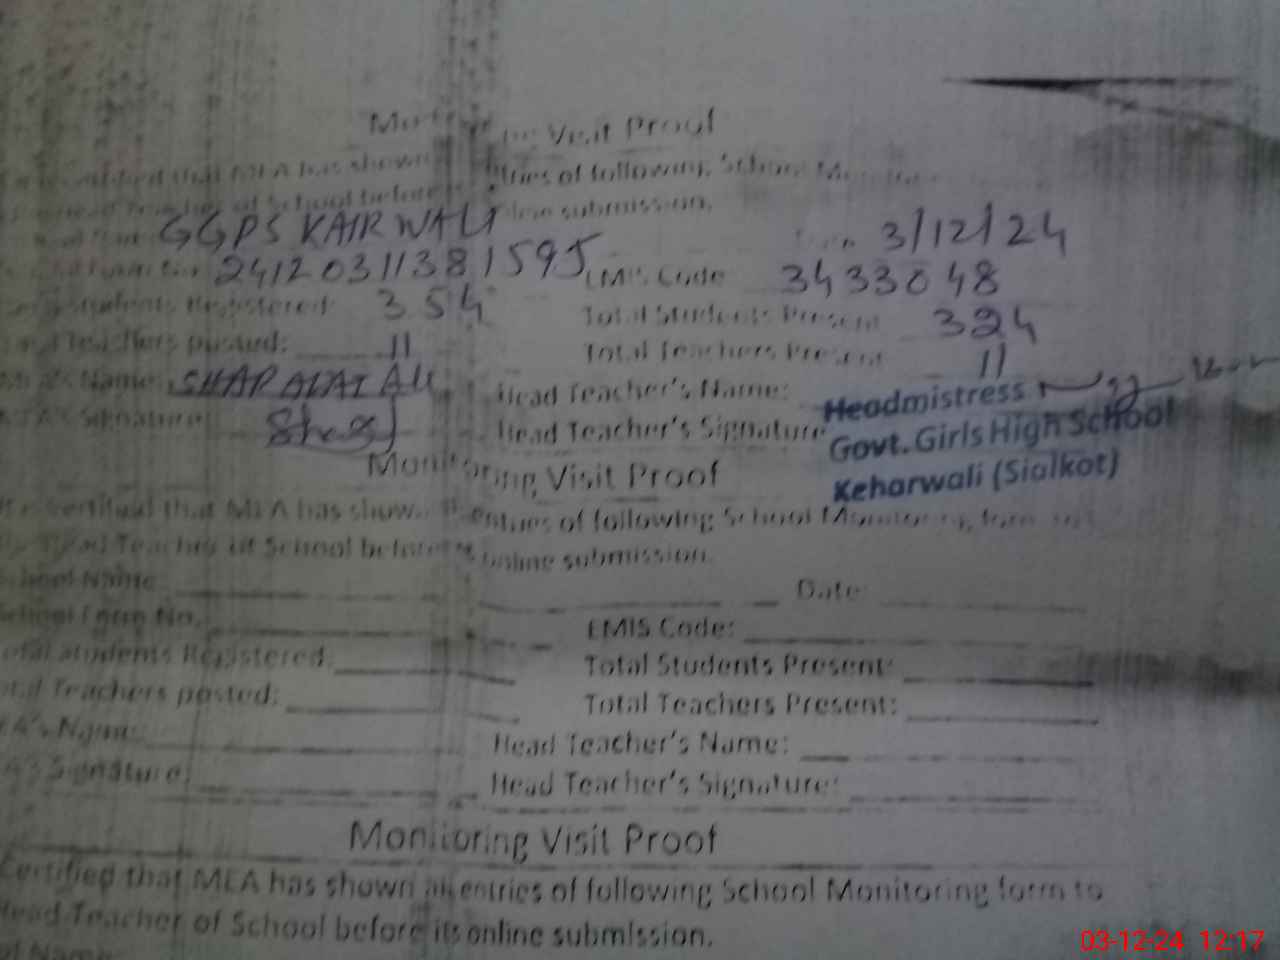 Visit Proof
that MEA has shown entries of following School
Teacher of School before online submission.
GGPS KAIRWALI 3/12/24
24120311381595 EMIS Code 3433048
Students Registered: 354 Total Students Present 324
Teachers posted: 11 Total Teachers Present 11
Name: ALI Head Teacher's Name:
Signature: Head Teacher's Signature
Headmistress
Govt. Girls High School
Keharwali (Sialkot)
Monitoring Visit Proof
It is certified that MEA has shown entries of following School Monitoring form to
Head Teacher of School before its online submission.
School Name Date:
School Form No. EMIS Code:
Total Students Registered: Total Students Present:
Total Teachers posted: Total Teachers Present:
MEA's Name: Head Teacher's Name:
MEA's Signature: Head Teacher's Signature:
Monitoring Visit Proof
Certified that MEA has shown all entries of following School Monitoring form to
Head Teacher of School before its online submission.
Name:
03-12-24 12:17